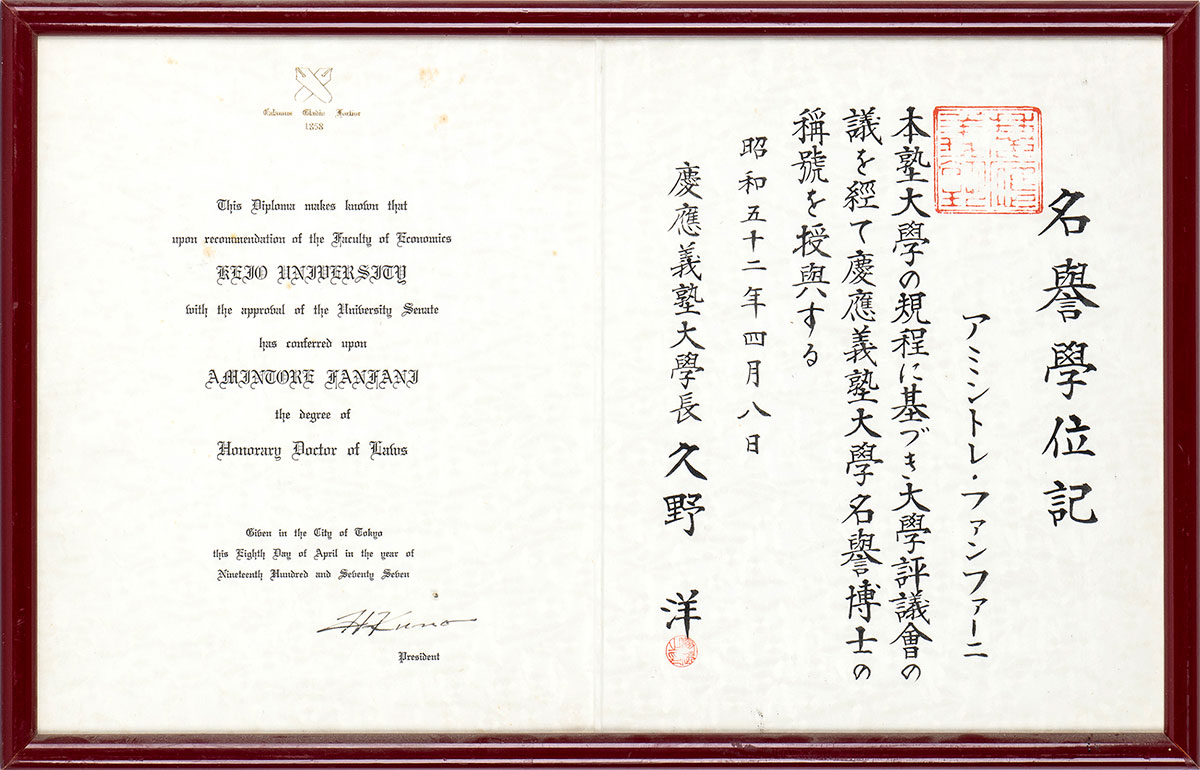 Calamus Gladio Fortior
1858
This Diploma makes known that
upon recommendation of the Faculty of Economics
KEIO UNIVERSITY
with the approval of the University Senate
has conferred upon
AMINTORE FANFANI
the degree of
Honorary Doctor of Laws
Given in the City of Tokyo
this Eighth Day of April in the year of
Nineteenth Hundred and Seventy Seven
H Kuno
President
名譽學位記
アミントレ・ファンファーニ
本塾大學の規程に基づき大學評議會の
議を經て慶應義塾大學名譽博士の
稱號を授與する
昭和五十二年四月八日
慶應義塾大學長 久野 洋